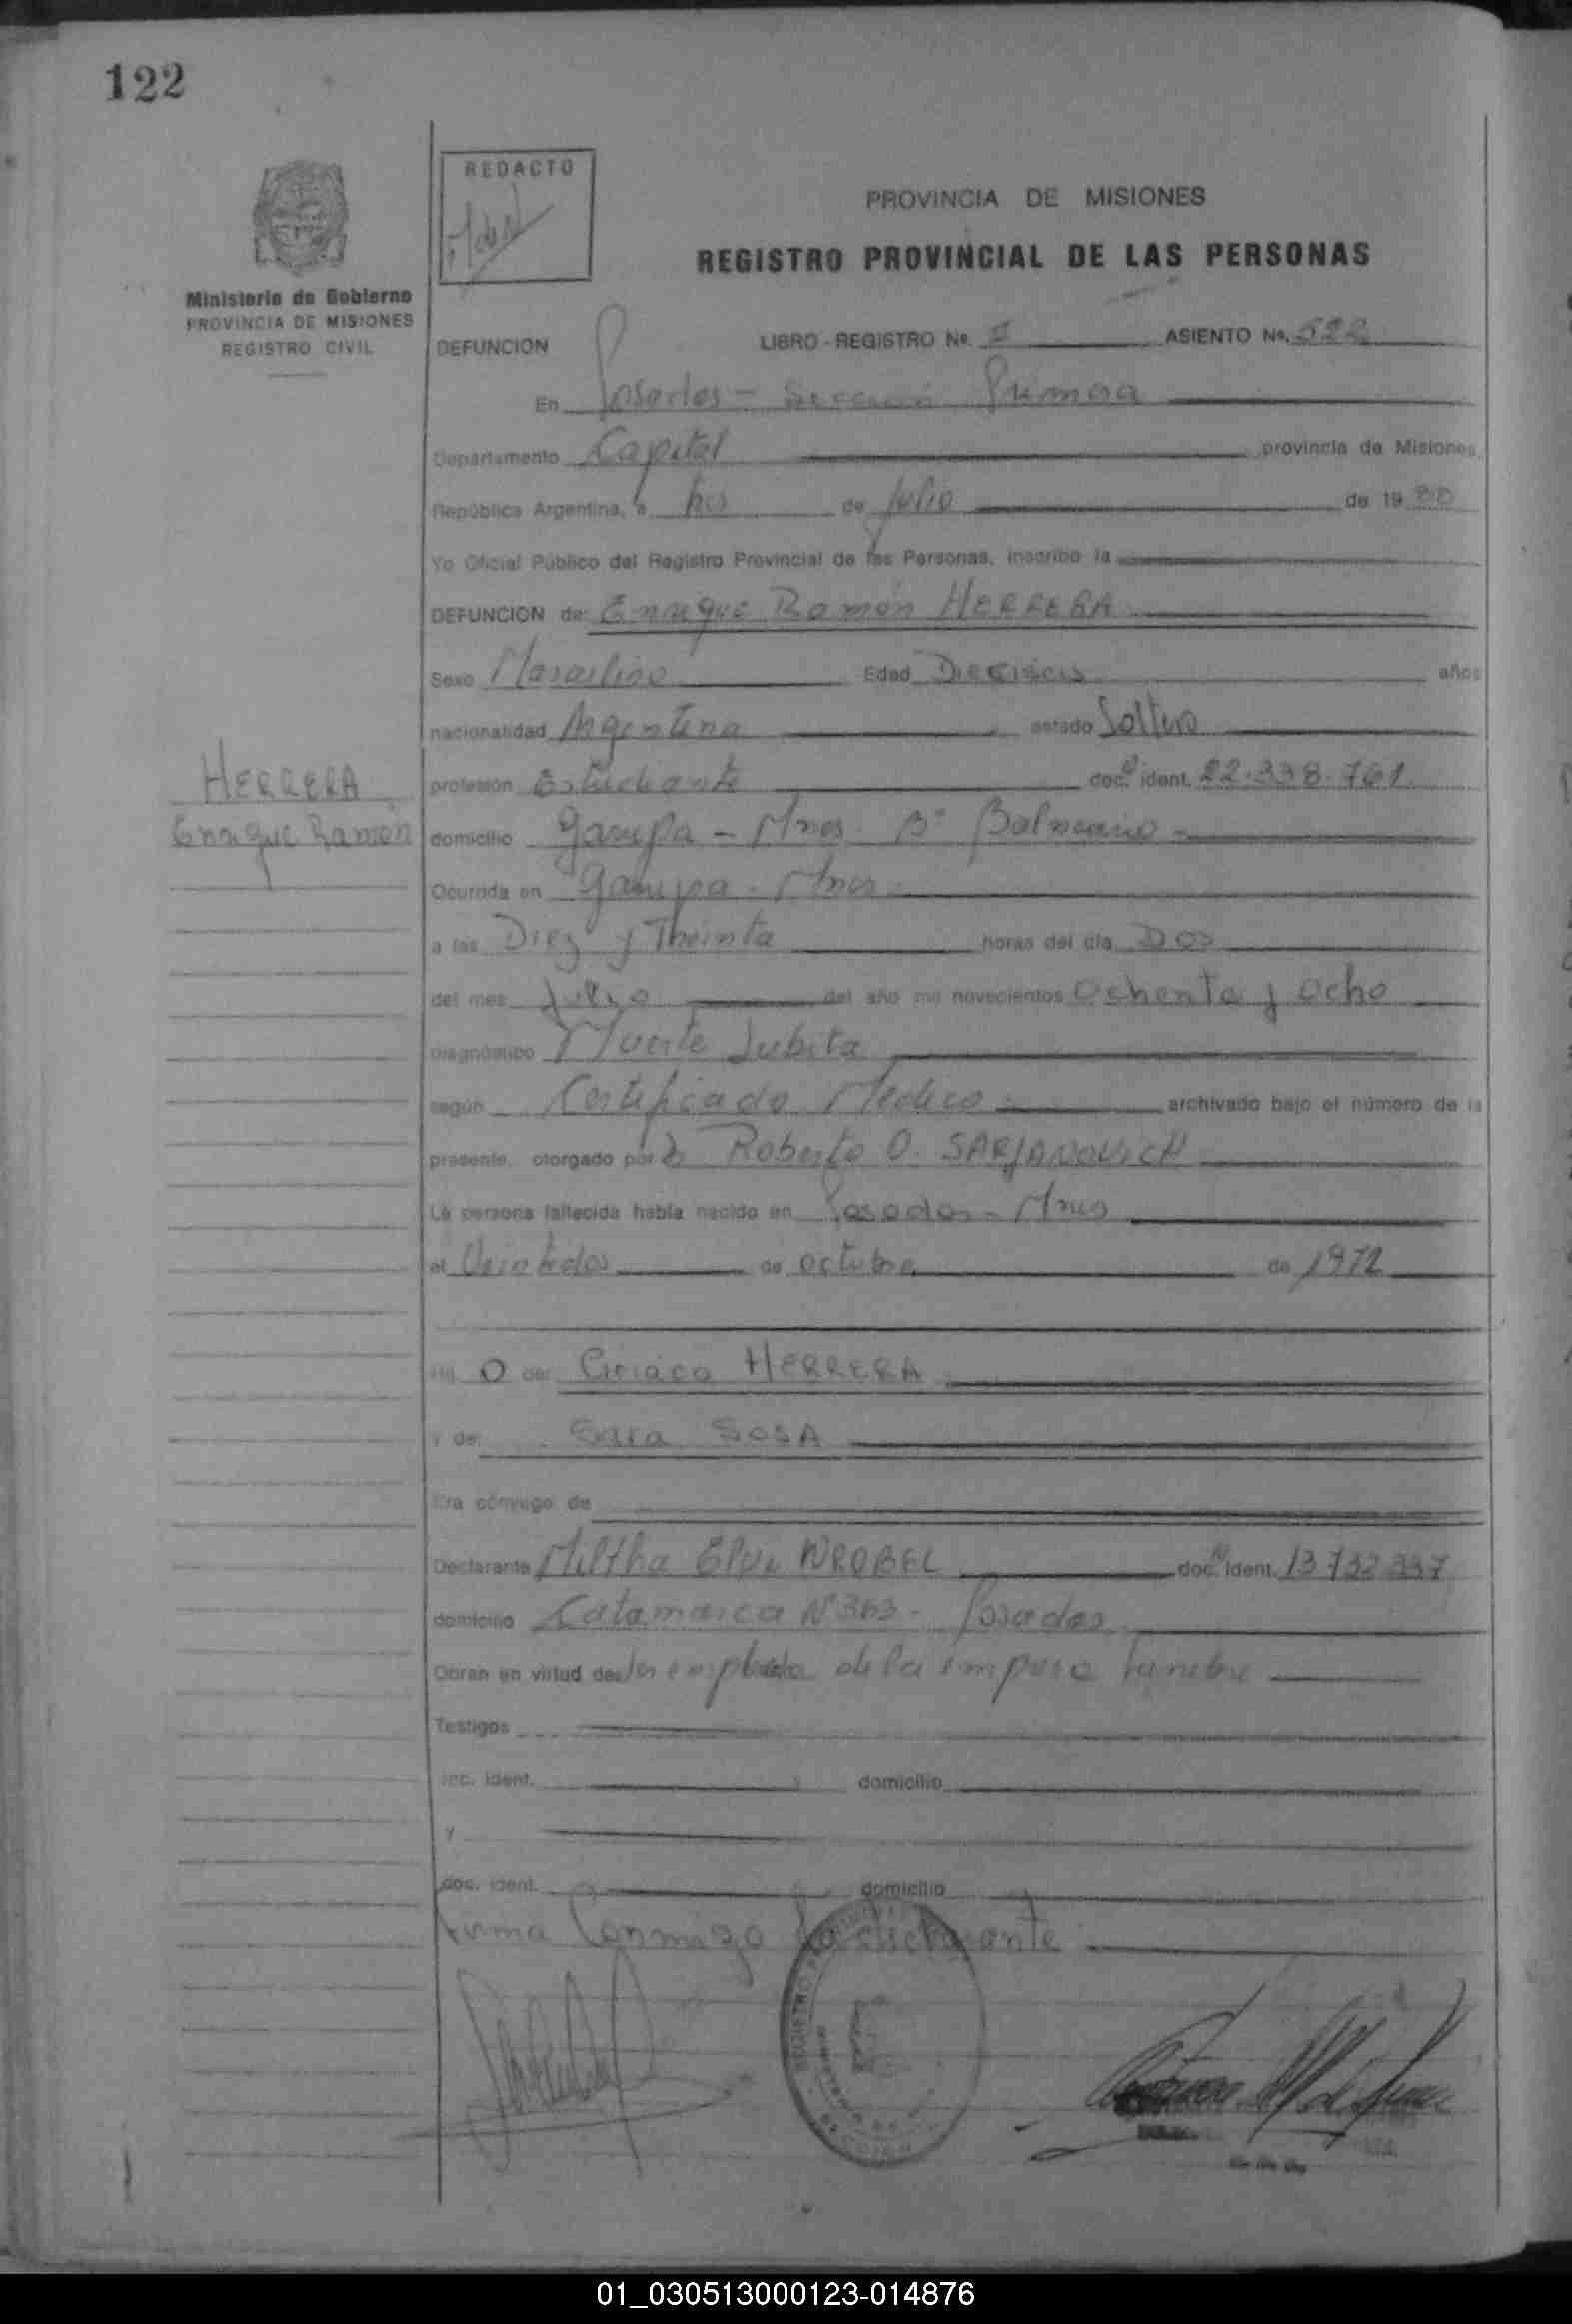 122
REDACTO
PROVINCIA DE MISIONES
REGISTRO PROVINCIAL DE LAS PERSONAS
Ministerio de Gobierno
PROVINCIA DE MISIONES
REGISTRO CIVIL
DEFUNCION LIBRO - REGISTRO No. I ASIENTO No. 522
En Posadas - Sección Primera
Departamento Capital provincia de Misiones,
República Argentina, a tres de Julio de 19 88
Yo Oficial Público del Registro Provincial de las Personas, inscribo la
DEFUNCION de: Enrique Ramón HERRERA
Sexo Masculino Edad Dieciseis años
nacionalidad Argentina estado Soltero
HERRERA
Enrique Ramón
profesión Estudiante doc. ident. 22.338.761
domicilio Garupa - Mnes. B° Balneario
Ocurrida en Garupa - Mnes.
a las Diez y Theinta horas del día Dos
del mes Julio del año mil novecientos Ochenta y Ocho
Diagnóstico Muerte Subita
según Certificado Medico archivado bajo el número de la
presente, otorgado por Dr Roberto O. SARJANOVICH
La persona fallecida había nacido en Posadas - Mnes
el Veintidos de octubre de 1972
Hij o de: Ciriaco HERRERA
Y de: Sara SOSA
Era cónyuge de
Declarante Miltha Elvi WROBEL doc. ident. 13732337
domicilio Catamarca N° 363 - Posadas
Obran en virtud de: Ser empleada de la empresa funebre
Testigos
doc. ident. domicilio
y
doc. ident. domicilio
Firma Conmigo La declarante
01_030513000123-014876